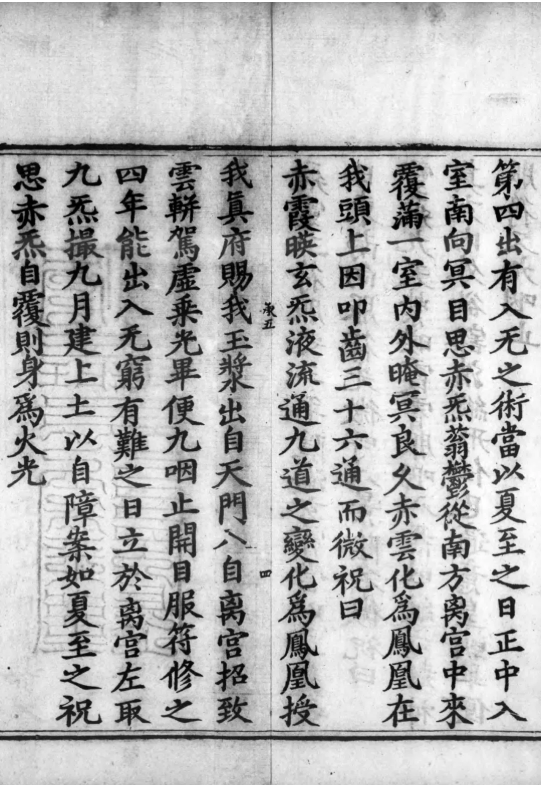 第四出有入无之術當以夏至之日正中入
室南向冥目思赤炁蓊鬱從南方离宫中來
覆滿一室内外晻冥良久赤雲化爲鳳凰在
我頭上因叩齒三十六通而微祝曰
赤霞暎玄炁液流通九道之變化爲鳳凰授
承五
四
我真府賜我玉漿出自天門入自离宫招致
雲輧駕虚乗光畢便九咽止開目服符修之
四年能出入无窮有難之日立於离宫左取
九炁撮九月建上土以自障案如夏至之祝
思赤炁自覆則身爲火光